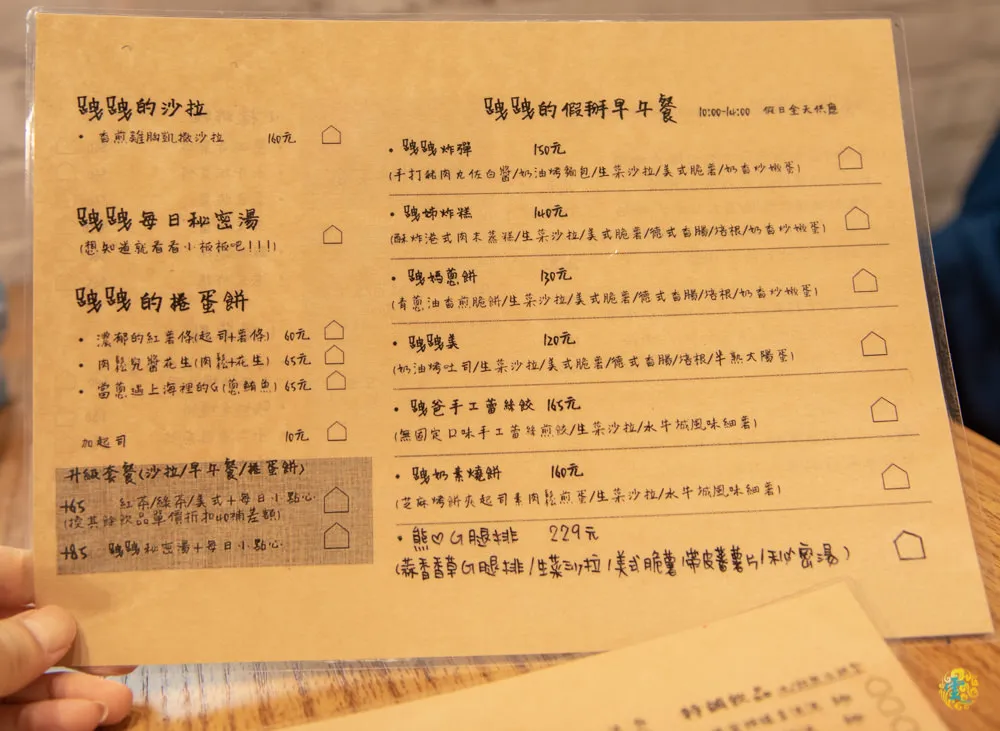 的沙拉
• 香煎雞胸凱撒沙拉 160元
每日秘密湯
(想知道就看看小板板吧!!!)
的捲蛋餅
• 濃郁的紅薯條(起司+薯條) 60元
• 肉鬆兒醬花生(肉鬆+花生) 65元
• 當蔥遇上海裡的G(蔥鮪魚) 65元
加起司 10元
升級套餐(沙拉/早午餐/捲蛋餅)
+65 紅茶/綠茶/美式+每日小點心
(換其餘飲品單價折扣40補差額)
+85 秘密湯+每日小點心
的假掰早午餐 10:00-14:00 假日全天供應
• 炸彈 150元
(手打豬肉丸佐白醬/奶油烤麵包/生菜沙拉/美式脆薯/奶香炒嫩蛋)
• 姊炸糕 140元
(酥炸港式肉末蒸糕/生菜沙拉/美式脆薯/德式香腸/培根/奶香炒嫩蛋)
• 媽蔥餅 130元
(青蔥油香煎脆餅/生菜沙拉/美式脆薯/德式香腸/培根/奶香炒嫩蛋)
• 美 120元
(奶油烤吐司/生菜沙拉/美式脆薯/德式香腸/培根/半熟太陽蛋)
• 爸手工蕾絲餃 165元
(無固定口味手工蕾絲煎餃/生菜沙拉/水牛城風味細薯)
• 奶素燒餅 160元
(芝麻烤餅夾起司素肉鬆煎蛋/生菜沙拉/水牛城風味細薯)
• 熊♡G腿排 229元
(蒜香香草G腿排/生菜沙拉/美式脆薯/帶皮薯片/秘密湯)